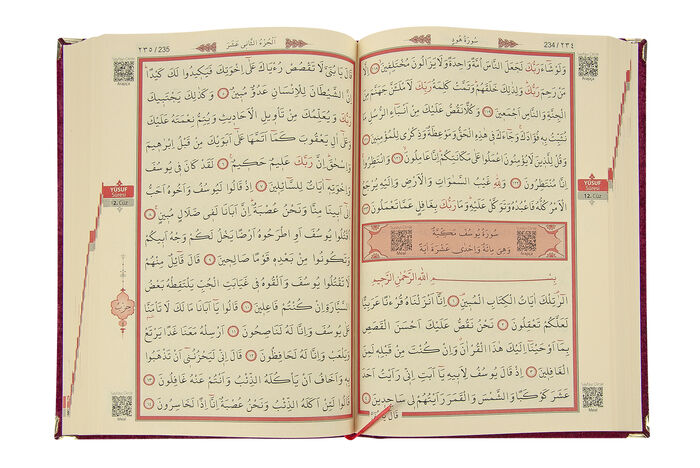 234 / ٢٣٤
سُورَةُ هُودٍ
وَلَوْ شَاءَ رَبُّكَ لَجَعَلَ النَّاسَ اُمَّةً وَاحِدَةً وَلَا يَزَالُونَ مُخْتَلِفٖينَ ﴿١١٨﴾ اِلَّا
مَنْ رَحِمَ رَبُّكَ وَلِذٰلِكَ خَلَقَهُمْ وَتَمَّتْ كَلِمَةُ رَبِّكَ لَاَمْلَـَٔنَّ جَهَنَّمَ مِنَ
الْجِنَّةِ وَالنَّاسِ اَجْمَعٖينَ ﴿١١٩﴾ وَكُلًّا نَقُصُّ عَلَيْكَ مِنْ اَنْبَاءِ الرُّسُلِ مَا
نُثَبِّتُ بِهٖ فُؤٰادَكَ وَجَاءَكَ فٖى هٰذِهِ الْحَقُّ وَمَوْعِظَةٌ وَذِكْرٰى لِلْمُؤْمِنٖينَ ﴿١٢٠﴾
وَقُلْ لِلَّذٖينَ لَا يُؤْمِنُونَ اعْمَلُوا عَلٰى مَكَانَتِكُمْ اِنَّا عَامِلُونَ ﴿١٢١﴾ وَانْتَظِرُوا
اِنَّا مُنْتَظِرُونَ ﴿١٢٢﴾ وَلِلّٰهِ غَيْبُ السَّمٰوَاتِ وَالْاَرْضِ وَاِلَيْهِ يُرْجَعُ
الْاَمْرُ كُلُّهُ فَاعْبُدْهُ وَتَوَكَّلْ عَلَيْهِ وَمَا رَبُّكَ بِغَافِلٍ عَمَّا تَعْمَلُونَ ﴿١٢٣﴾
سُورَةُ يُوسُفَ مَكِّيَّةٌ
وَهِىَ مِائَةٌ وَاِحْدٰى عَشْرَةَ اٰيَةً
Meal
Arapça
بِسْمِ اللّٰهِ الرَّحْمٰنِ الرَّحٖيمِ
الٓرٰ تِلْكَ اٰيَاتُ الْكِتَابِ الْمُبٖينِ ﴿١﴾ اِنَّا اَنْزَلْنَاهُ قُرْءٰنًا عَرَبِيًّا
لَعَلَّكُمْ تَعْقِلُونَ ﴿٢﴾ نَحْنُ نَقُصُّ عَلَيْكَ اَحْسَنَ الْقَصَصِ
بِمَا اَوْحَيْنَا اِلَيْكَ هٰذَا الْقُرْاٰنَ وَاِنْ كُنْتَ مِنْ قَبْلِهٖ لَمِنَ
الْغَافِلٖينَ ﴿٣﴾ اِذْ قَالَ يُوسُفُ لِاَبٖيهِ يَا اَبَتِ اِنّٖى رَاَيْتُ اَحَدَ
عَشَرَ كَوْكَبًا وَالشَّمْسَ وَالْقَمَرَ رَاَيْتُهُمْ لٖى سَاجِدٖينَ ﴿٤﴾
Arapça
YÛSUF
Sûresi
12. Cüz
Meal
اَلْجُزْءُ الثَّانٖى عَشَرَ
٢٣٥ / 235
قَالَ يَا بُنَىَّ لَا تَقْصُصْ رُءْيَاكَ عَلٰى اِخْوَتِكَ فَيَكٖيدُوا لَكَ كَيْدًا
اِنَّ الشَّيْطَانَ لِلْاِنْسَانِ عَدُوٌّ مُبٖينٌ ﴿٥﴾ وَكَذٰلِكَ يَجْتَبٖيكَ
رَبُّكَ وَيُعَلِّمُكَ مِنْ تَأْوٖيلِ الْاَحَادٖيثِ وَيُتِمُّ نِعْمَتَهُ عَلَيْكَ
وَعَلٰى اٰلِ يَعْقُوبَ كَمَا اَتَمَّهَا عَلٰى اَبَوَيْكَ مِنْ قَبْلُ اِبْرٰهٖيمَ
وَاِسْحٰقَ اِنَّ رَبَّكَ عَلٖيمٌ حَكٖيمٌ ﴿٦﴾ لَقَدْ كَانَ فٖى يُوسُفَ
وَاِخْوَتِهٖ اٰيَاتٌ لِلسَّائِلٖينَ ﴿٧﴾ اِذْ قَالُوا لَيُوسُفُ وَاَخُوهُ اَحَبُّ
اِلٰى اَبٖينَا مِنَّا وَنَحْنُ عُصْبَةٌ اِنَّ اَبَانَا لَفٖى ضَلَالٍ مُبٖينٍ ﴿٨﴾
اُقْتُلُوا يُوسُفَ اَوِ اطْرَحُوهُ اَرْضًا يَخْلُ لَكُمْ وَجْهُ اَبٖيكُمْ
وَتَكُونُوا مِنْ بَعْدِهٖ قَوْمًا صَالِحٖينَ ﴿٩﴾ قَالَ قَائِلٌ مِنْهُمْ
لَا تَقْتُلُوا يُوسُفَ وَاَلْقُوهُ فٖى غَيَابَتِ الْجُبِّ يَلْتَقِطْهُ بَعْضُ
السَّيَّارَةِ اِنْ كُنْتُمْ فَاعِلٖينَ ﴿١٠﴾ قَالُوا يَا اَبَانَا مَا لَكَ لَا تَأْمَنَّا
عَلٰى يُوسُفَ وَاِنَّا لَهُ لَنَاصِحُونَ ﴿١١﴾ اَرْسِلْهُ مَعَنَا غَدًا يَرْتَعْ
وَيَلْعَبْ وَاِنَّا لَهُ لَحَافِظُونَ ﴿١٢﴾ قَالَ اِنّٖى لَيَحْزُنُنٖى اَنْ تَذْهَبُوا
بِهٖ وَاَخَافُ اَنْ يَأْكُلَهُ الذِّئْبُ وَاَنْتُمْ عَنْهُ غَافِلُونَ ﴿١٣﴾
قَالُوا لَئِنْ اَكَلَهُ الذِّئْبُ وَنَحْنُ عُصْبَةٌ اِنَّا اِذًا لَخَاسِرُونَ ﴿١٤﴾
Arapça
YÛSUF
Sûresi
12. Cüz
حزب
Meal